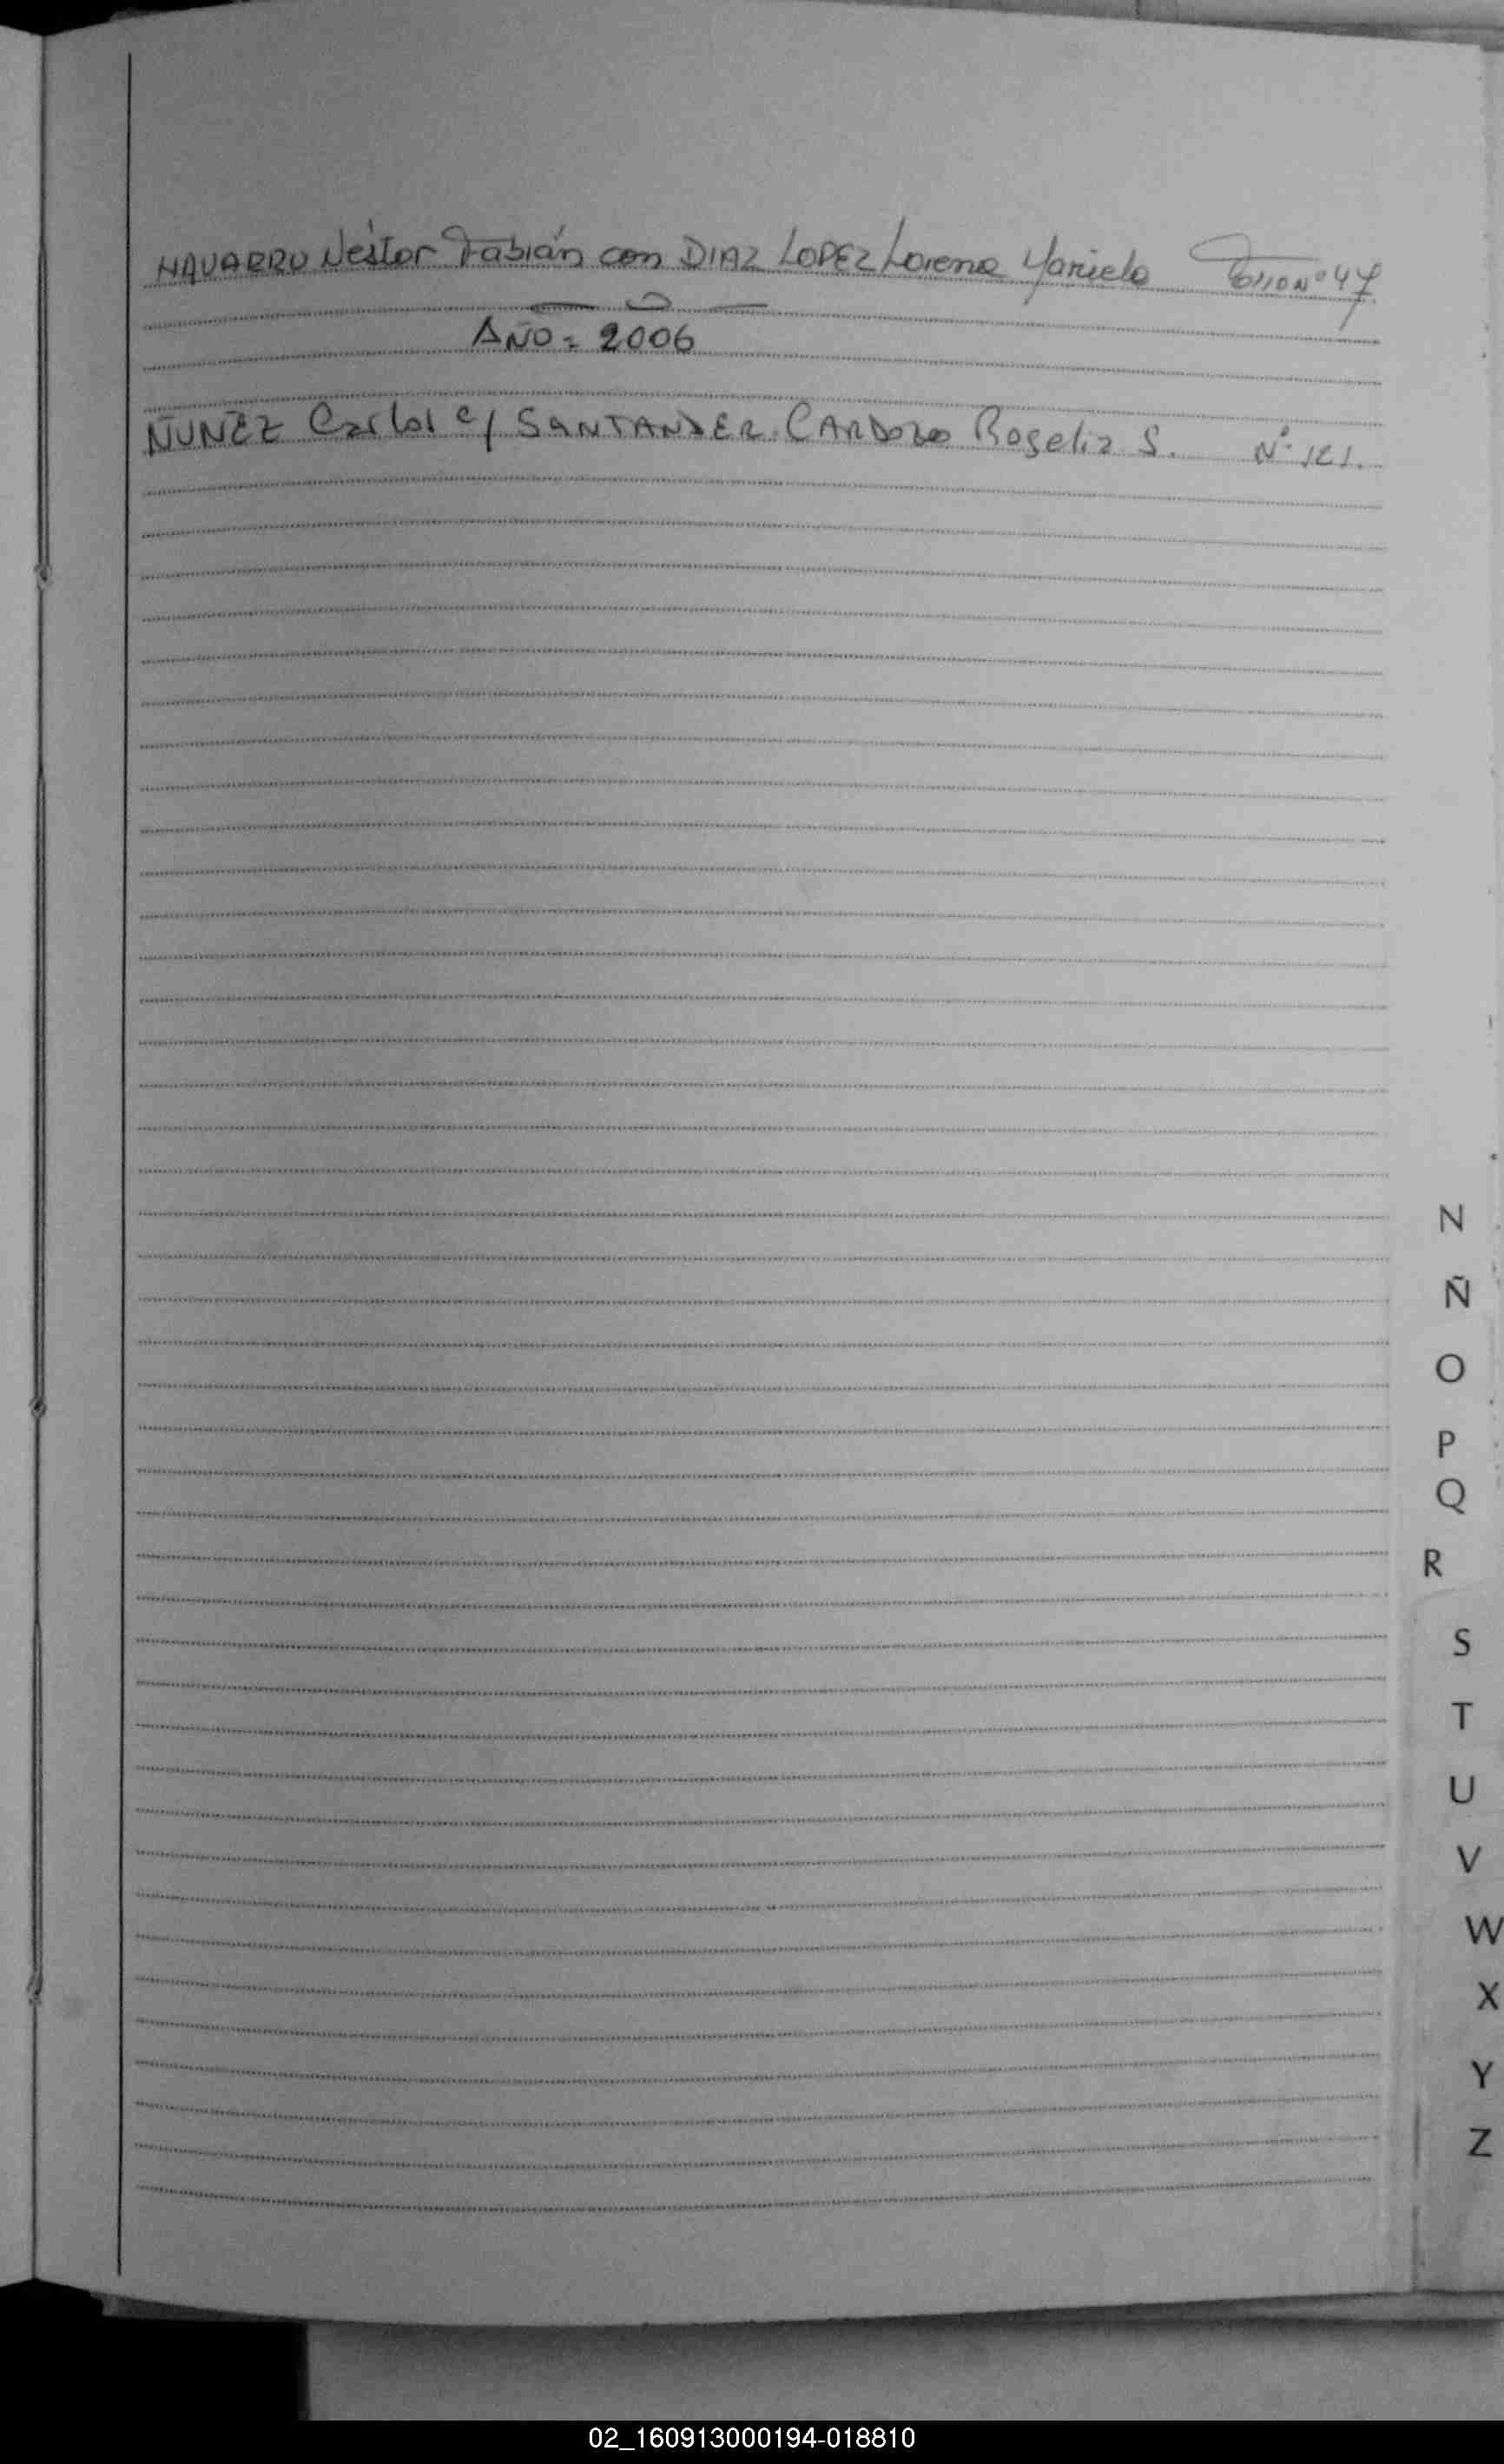 NAVARRO Néstor Fabián con DIAZ LOPEZ Lorena Mariela Folio Nº 47
AÑO = 2006
ÑUÑEZ Carlos c/ SANTANDER. CARDOZO Rogelia S. Nº 121.
N
Ñ
O
P
Q
R
S
T
U
V
W
X
Y
Z
02_160913000194-018810